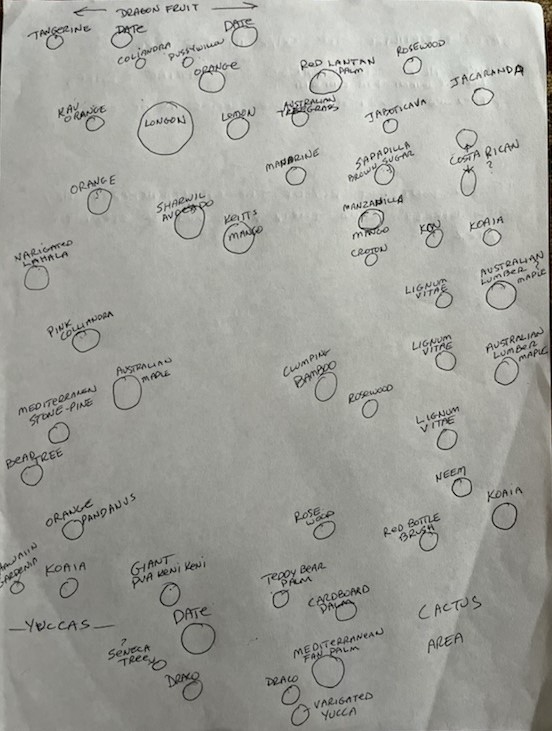 DRAGON FRUIT
TANGERINE
DATE
DATE
COLIANDRA
PUSSYWILLOW
ORANGE
RED LANTAN
PALM
ROSEWOOD
JACARANDA
KAU
ORANGE
LONGON
LEMON
AUSTRALIAN
TREEGRASS
JABOTICAVA
MANARINE
SAPADILLA
BROWN SUGAR
COSTA RICAN
?
ORANGE
SHARWIL
AVOCADO
KEITTS
MANGO
MANZANILLA
MANGO
CROTON
KOU
KOAIA
NARIGATED
LAHALA
LIGNUM
VITAE
AUSTRALIAN
LUMBER ?
MAPLE
PINK
COLLIANDRA
AUSTRALIAN
MAPLE
CLUMPING
BAMBOO
LIGNUM
VITAE
AUSTRALIAN
LUMBER
MAPLE
MEDITERRANEN
STONE-PINE
ROSEWOOD
LIGNUM
VITAE
BEARTREE
NEEM
KOAIA
ORANGE
PANDANUS
ROSE
WOOD
RED BOTTLE
BRUSH
HAWAIIN
GARDENIA
KOAIA
GIANT
PUA KENI KENI
TEDDY BEAR
PALM
CARDBOARD
PALM
CACTUS
AREA
YUCCAS
DATE
?
SENECA
TREE
MEDITERRANEAN
FAN PALM
DRACO
DRACO
VARIGATED
YUCCA